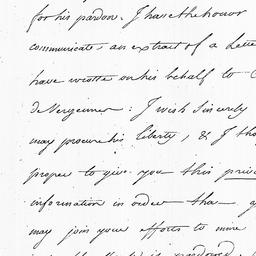 for his pardon. I have the honor
communicate, an extract of a Lette
have wrote on his behalf to C
de Vergennes: I wish Sincerely
may procure his liberty, & I tho
proper to give you this priv
information in order that y
may join your efforts to mine
is pardoned.